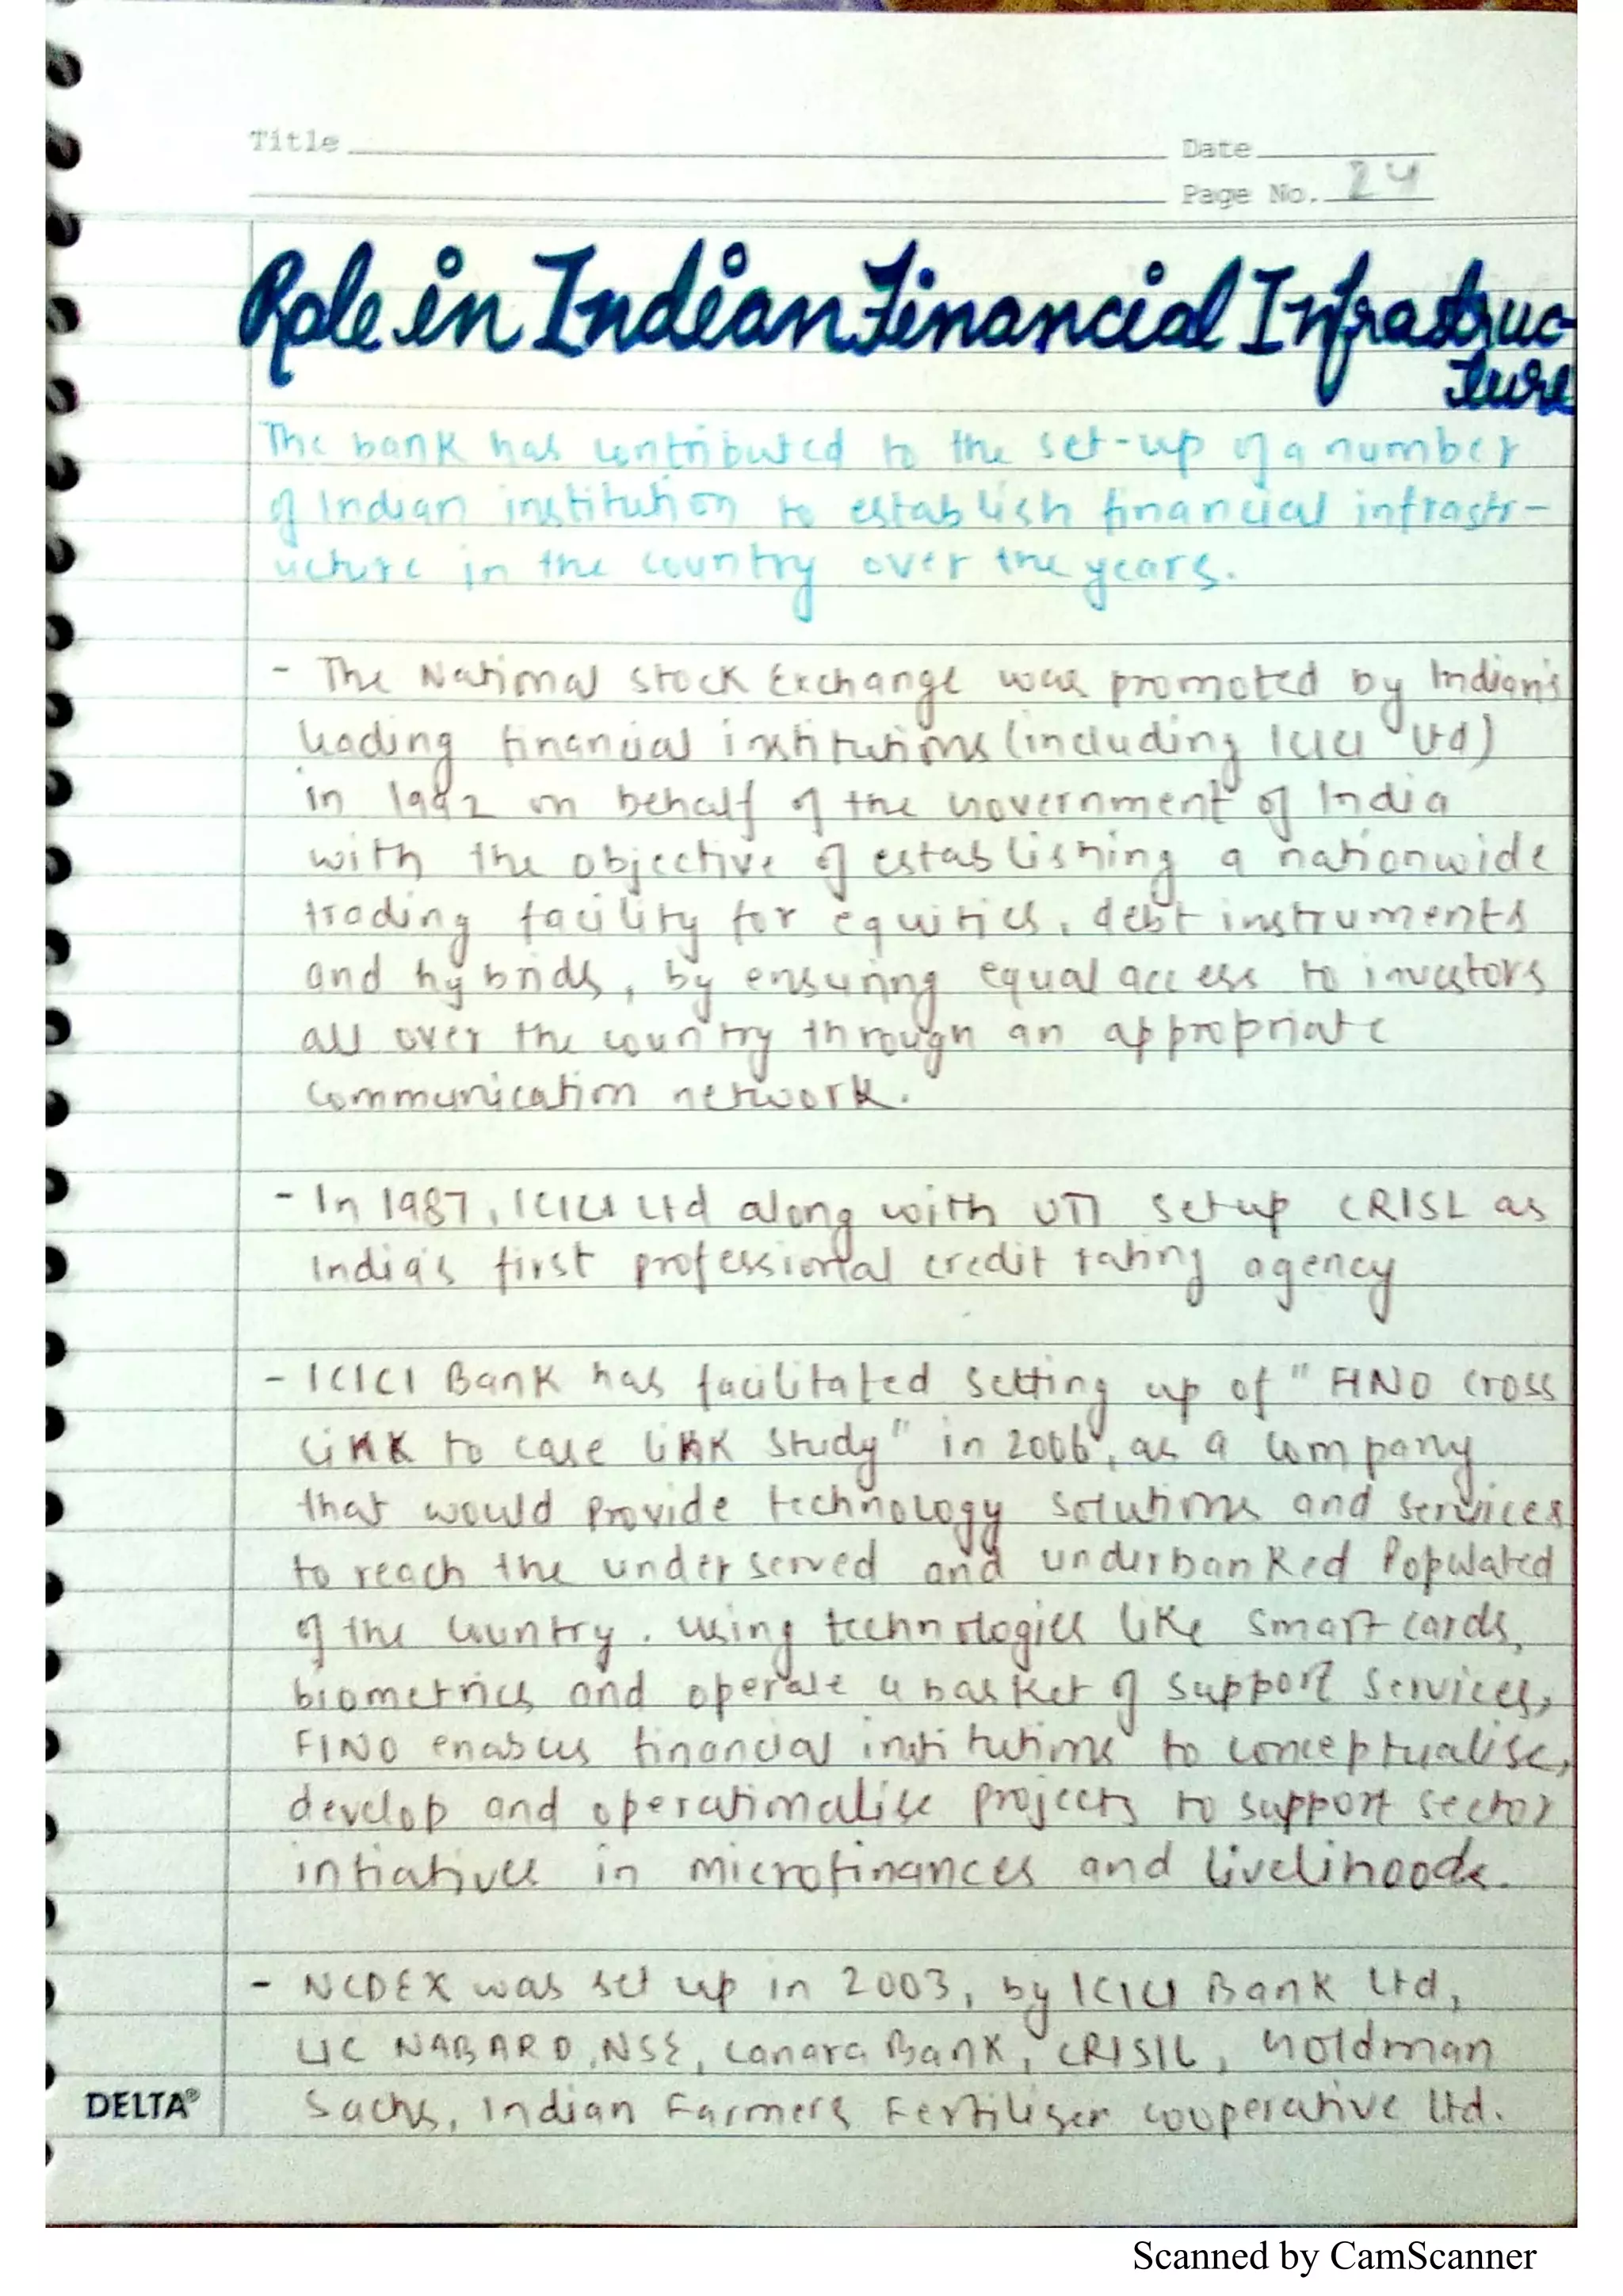 Title
Date
Page No. 24
Role in Indian Financial Infrastruc-
ture
The bank has contributed to the set-up of a number
of Indian institution to establish financial infrastr-
ucture in the country over the years.
- The National Stock Exchange was promoted by Indian's
leading financial institutions (including ICICI Ltd)
in 1992 on behalf of the Government of India
with the objective of establishing a nationwide
trading facility for equities, debt instruments
and hybrids, by ensuring equal access to investors
all over the country through an appropriate
communication network.
- In 1987, ICICI Ltd along with UTI set up CRISL as
India's first professional credit rating agency
- ICICI Bank has facilitated setting up of "FINO Cross
Link to Case Link Study" in 2006, as a company
that would provide technology solutions and services
to reach the underserved and underbanked Populated
of the country. Using technologies like smart cards,
biometrics and operate a basket of support services,
FINO enables financial institutions to conceptualise,
develop and operationalise projects to support sector
intiatives in microfinances and livelihoods.
- NCDEX was set up in 2003, by ICICI Bank Ltd,
LIC NABARD, NSE, Canara Bank, CRISIL, Goldman
Sachs, Indian Farmers Fertiliser Cooperative Ltd.
DELTA®
Scanned by CamScanner